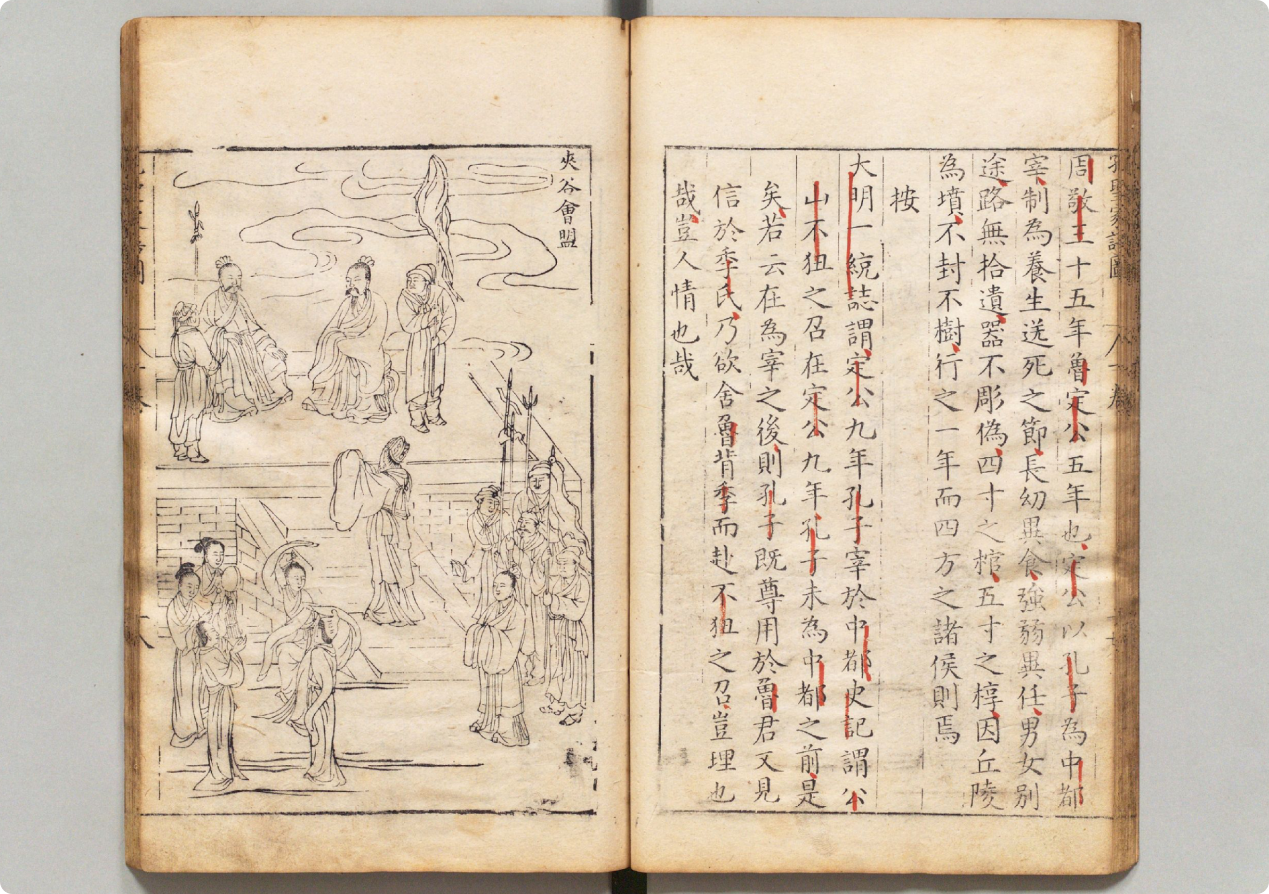 孔聖家語圖
周敬王十五年魯定公五年也定公以孔子為中都
宰制為養生送死之節長幼異食強弱異任男女別
途路無拾遺器不彫偽四寸之棺五寸之椁因丘陵
為墳不封不樹行之一年而四方之諸侯則焉
按
大明一統誌謂定公九年孔子宰於中都史記謂公
山不狃之召在定公九年孔子未為中都之前是
矣若云在為宰之後則孔子既尊用於魯君又見
信於季氏乃欲舍魯背季而赴不狃之召豈理也
哉豈人情也哉
夾谷會盟